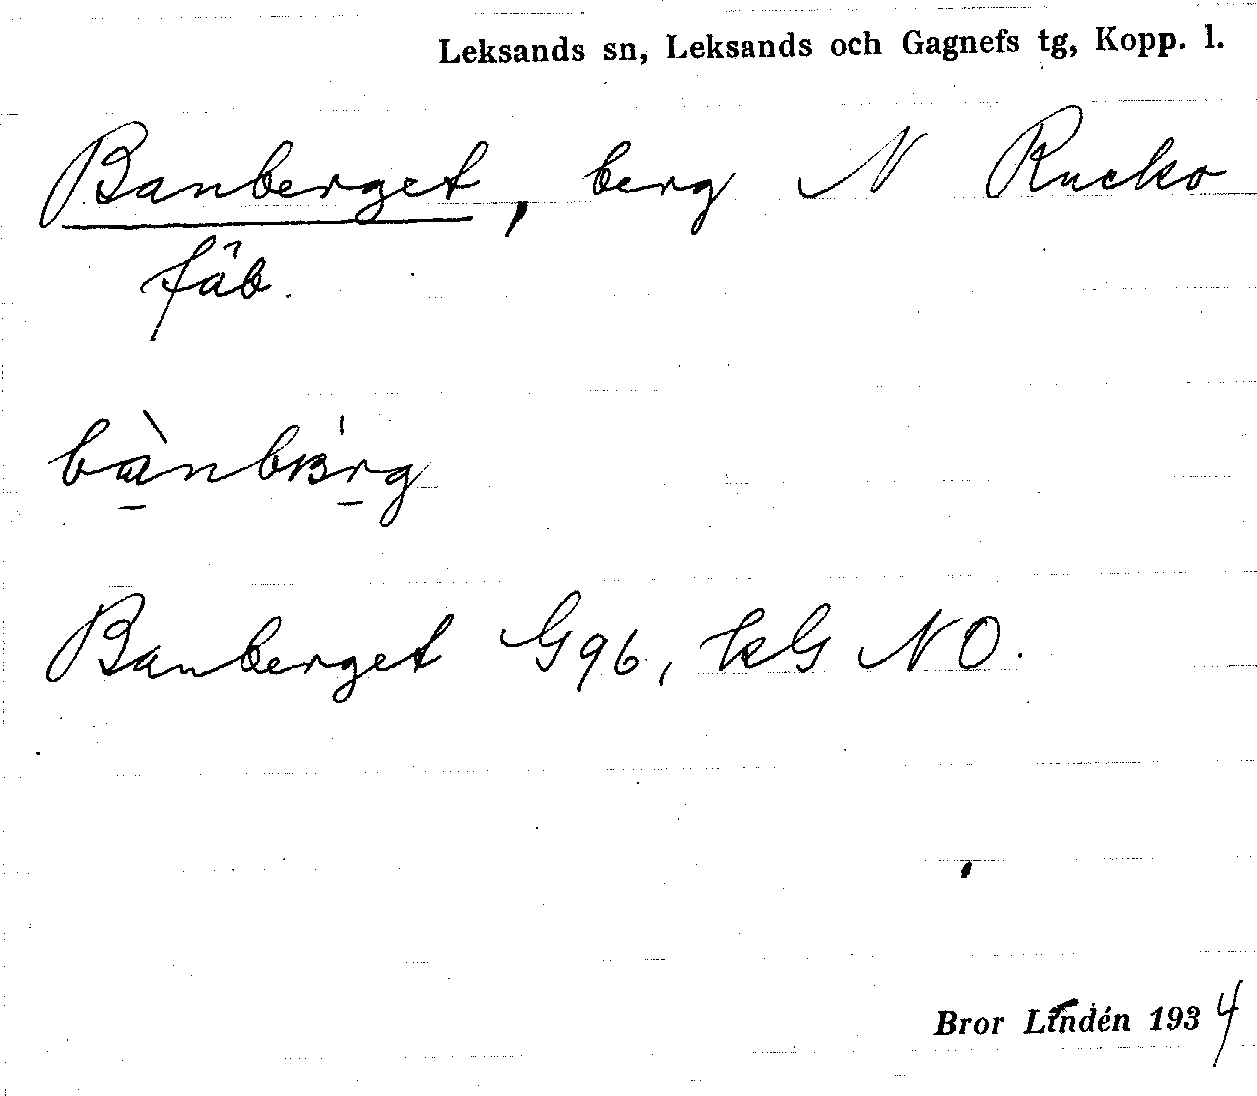 Leksands sn, Leksands och Gagnefs tg, Kopp. l.
Banberget, berg N Rucko
fäb.
Banberget G96, kG NO.
Bror Lindén 1934